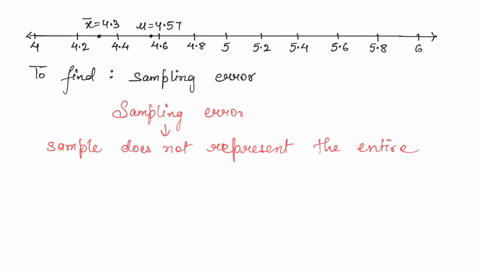 x̅=4.3 μ=4.57
4 4.2 4.4 4.6 4.8 5 5.2 5.4 5.6 5.8 6
To find : sampling error
Sampling error
↓
sample does not represent the entire